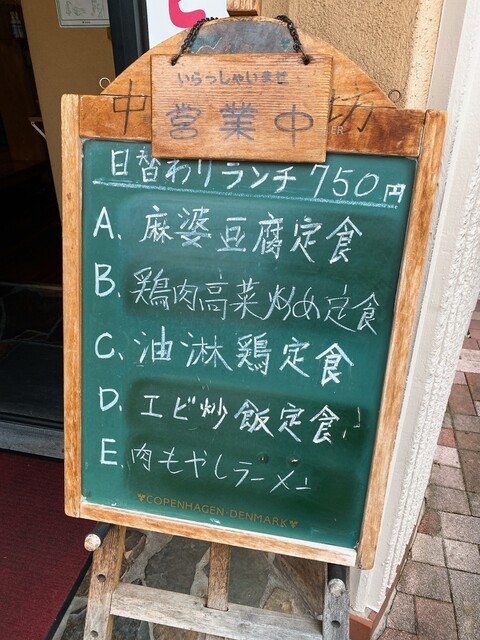 いらっしゃいませ
営業中
中 坊
日替わりランチ 750円
A. 麻婆豆腐定食
B. 鶏肉高菜炒め定食
C. 油淋鶏定食
D. エビ炒飯定食
E. 肉もやしラーメン
COPENHAGEN·DENMARK